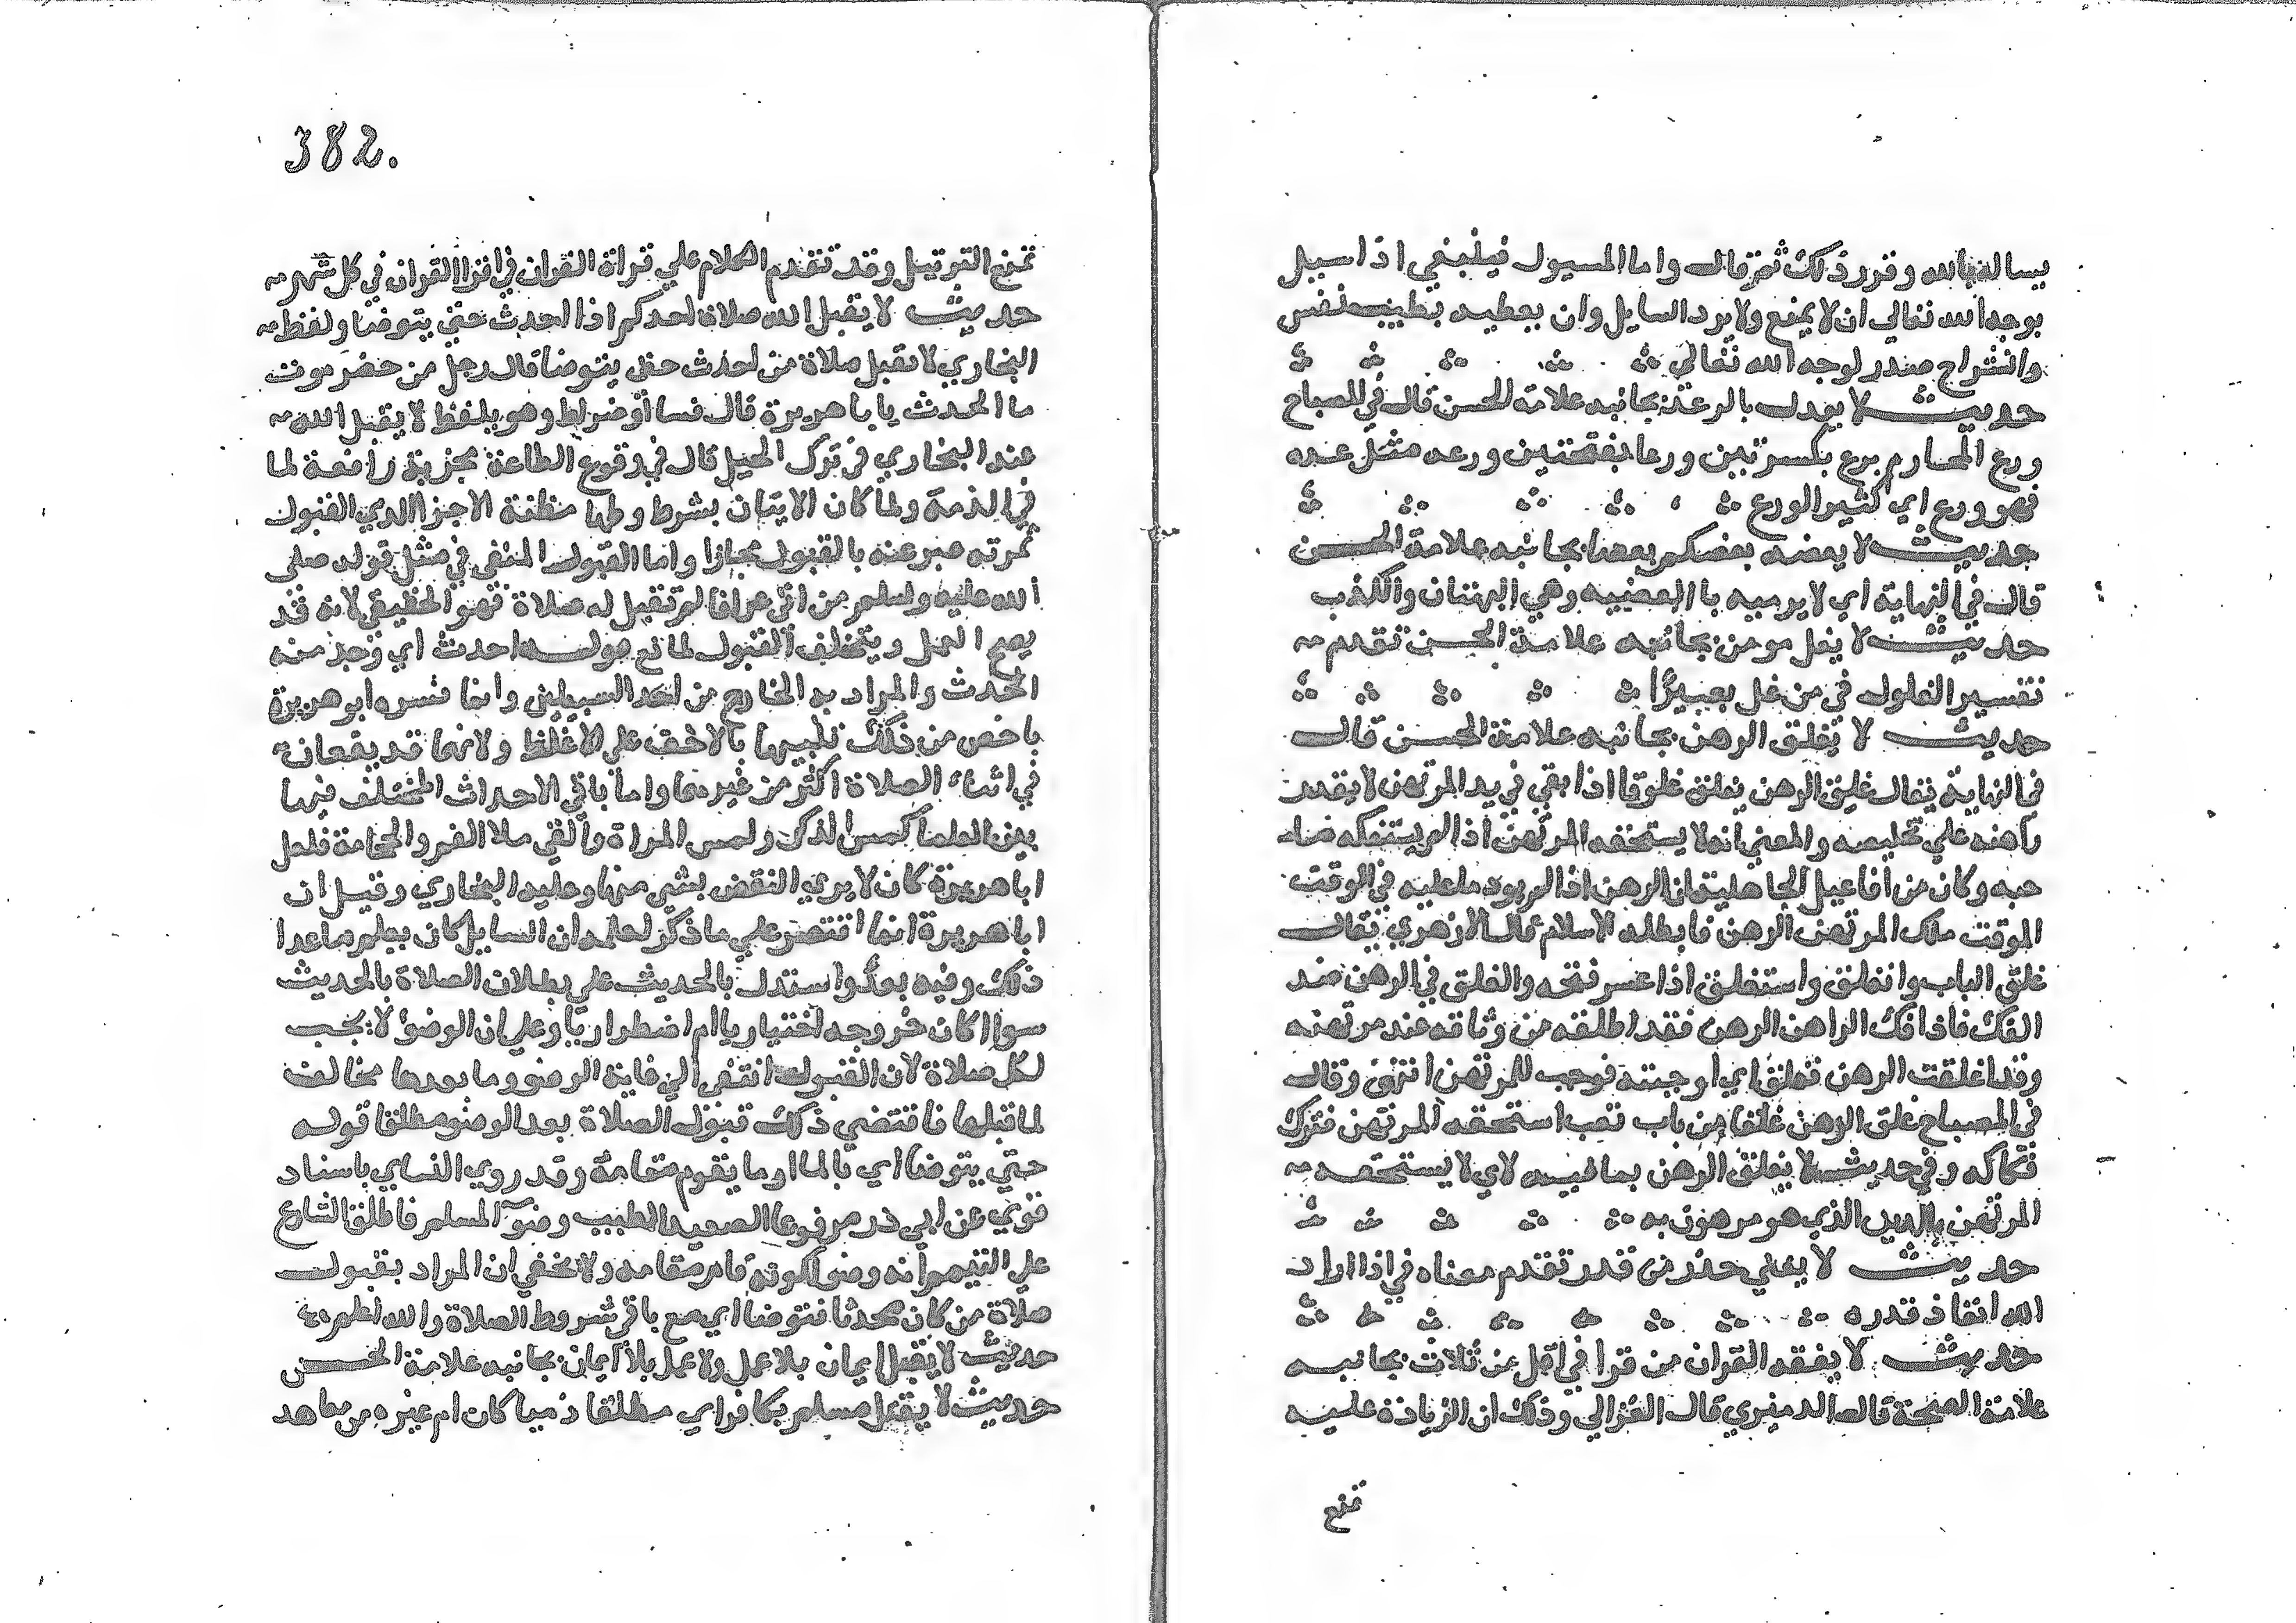 يساله بالله وقرر ذلك ثم قال واما المسيول فينبغي اذا سيل
بوجه الله تعالي ان لا يمنع ولا يرد السايل وان يعطيه بطيب نفس
وانشراح صدر لوجه الله تعالي
حديث لا يعدل بالرعة بجانبه علامة الحسن قال في المصباح
ورع المحارم يرع بكسرتين ورعا بفتحتين ورعه مثل عده
فهو ورع اي كثير الورع
حديث لا يعضه بعضكم بعضا بجانبه علامة الحسن
قال في النهاية اي لا يرميه بالعضيهه وهي البهتان والكذب
حديث لا يغل مومن بجانبه علامة الحسن تقدم
تفسير الغلول في من غل بعيرا
حديث لا يغلق الرهن بجانبه علامة الحسن قال
في النهاية يقال غلق الرهن يغلق غلوقا اذا بقي في يد المرتهن لا يقدر
راهنه علي تخليصه والمعني انه لا يستحقه المرتهن اذا لم يستفكه صا
حبه وكان من افاعيل الجاهلية ان الرهن اذا لم يود ما عليه في الوقت
الموقت ملك المرتهن الرهن فابطله الاسلام قال الازهري يقال
غلق الباب وانغلق واستغلق اذا عسر فتحه والغلق في الرهن ضد
الفك فاذا فك الراهن الرهن فقد اطلقه من وثاقه عند مرتهنه
وقد اغلقت الرهن فغلق اي اوجبته فوجب للمرتهن انتهي وقال
في المصباح غلق الرهن غلقا من باب تعب استحقه المرتهن فترك
فكاكه وفي حديث لا يغلق الرهن بما فيه لاي لا يستحقه
المرتهن بالدين الذي هو مرهون به
حديث لا يغني حذر من قدر تقدم معناه في اذا اراد
الله انفاذ قدره
حديث لا يفقه القران من قرا في اقل من ثلاث بجانبه
علامة الصحة قال الدميري قال الغزالي وذلك ان الزيادة عليه
تمنع
382.
تمنع الترتيل وقد تقدم الكلام علي قراة القران في اقرا القران في كل شهر
حديث لا يقبل الله صلاة احدكم اذا احدث حتي يتوضا ولفظ
البخاري لا تقبل صلاة من احدث حتي يتوضا قال رجل من حضرموت
ما الحدث يابا هريرة قال فسا او ضراط وهو بلفظ لا يقبل الله
عند البخاري في ترك الحيل قال في وقوع الطاعة مجزية رافعة لما
في الذمة ولما كان الاتيان بشرطها مظنة الاجزا الذي القبول
ثمرته عبر عنه بالقبول مجازا واما القبول المنفي في مثل قوله صلي
الله عليه وسلم من اتي عرافا لم تقبل له صلاة فهو الحقيقي لانه قد
يصح العمل ويتخلف القبول لمانع قوله احدث اي وجد منه
الحدث والمراد به الخارج من احد السبيلين وانما فسره ابو هريرة
باخص من ذلك تنبيها بالاخف علي الاغلظ ولانهما قد يقعان
في اثناء الصلاة اكثر من غيرهما واما باقي الاحداث المختلف فيها
بين العلما كمس الذكر ولمس المراة والقي ملا الفم والحجامة فلعل
ابا هريرة كان لا يري النقض بشي منها وعليه البخاري وقيل ان
ابا هريرة انما اقتصر علي ما ذكر لعلمه ان السايل كان يعلم ما عدا
ذلك وفيه بعد واستدل بالحديث علي بطلان الصلاة بالحديث
سوا اكان خروجه اختياريا ام اضطراريا وعلي ان الوضؤ لا يجب
لكل صلاة لان القبول انتفي الي غاية الوضو وما بعدها مخالف
لما قبلها فاقتضي ذلك قبول الصلاة بعد الوضو مطلقا قوله
حتي يتوضا اي بالما او ما يقوم مقامه وقد روي النساي باسناد
قوي عن ابي ذر مرفوعا الصعيد الطيب وضو المسلم فاطلق الشارع
علي التيمم انه وضو لكونه قام مقامه ولا يخفي ان المراد بقبول
صلاة من كان محدثا فتوضا اي مع باقي شروط الصلاة والله اعلم
حديث لا يقبل ايمان بلا عمل ولا عمل بلا ايمان بجانبه علامة الحسن
حديث لا يقتل مسلم بكافر اي مطلقا ذميا كان ام غيره من معاهد